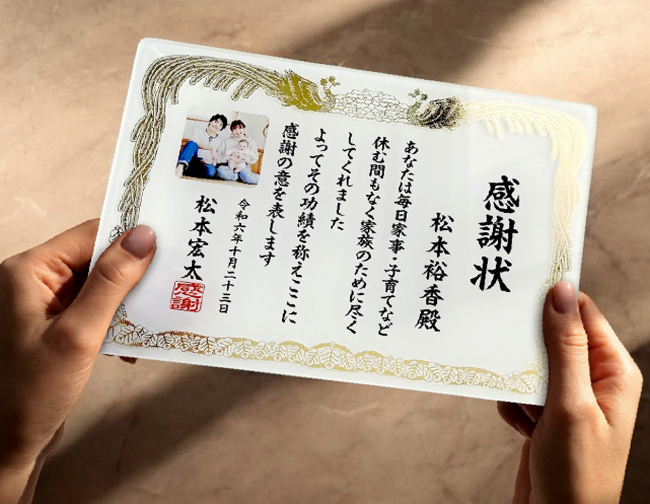 感謝状
松本裕香殿
あなたは毎日家事・子育てなど
休む間もなく家族のために尽く
してくれました
よってその功績を称えここに
感謝の意を表します
令和六年十月二十三日
松本宏太
感謝